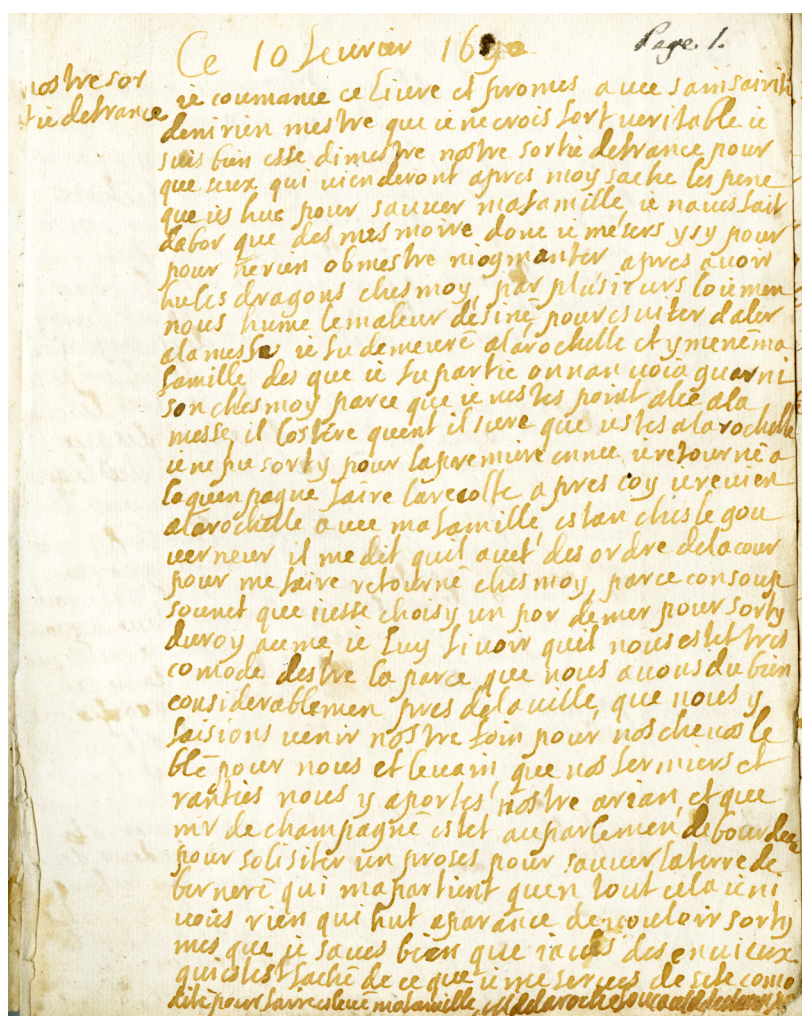 Ce 10 feurier 1690
Page. 1.
nostre sor
tie defrance
ie coumance ce liure et promes auec sainsairité
deni rien mestre que ie ne crois fort veritable ie
suis bien esse dimestre nostre sortie defrance pour
que seux qui vienderont apres moy sache les pene
que ies hue pour sauuer mafamille ie naues fait
dabor que des mesmoire donc ie mesers ysy pour
pour ne rien obmestre niogmanter apres auoir
hu les dragons ches moy par plusieurs
nous hume le maleur pour esuiter daler
ala messe ie fu demeure alarochelle et y menē ma
famille des que ie fu partie on nan uoia guarni
son ches moy parce que ie nestes point alée ala
messe il losterē quent il sure que iestes alarochelle
ie ne pu sorty pour lapremiere ennee ie retourne a
laquenpagne faire larecolte apres coy ie reuien
alarochelle auec mafamille estan ches le gou
uerneur il me dit quil auet des ordre delacour
pour me faire retourne ches moy, parce consoup
sounet que iesse choisy un por demer pour sorty
duroy aume, ie luy fi uoir quil nous estet tres
comode destre la parce que nous auons du bien
considerablemen pres delauille, que nous y
faisions uenir nostre foin pour nos cheuos le
ble pour nous et leuain que nos fermiers et
ranties nous y aportes nostre arian, et que
mr de champagnē estet auparlemen debourdea
pour solisiter un proses pour sauuer laterre de
bernere qui mapartient quen tout cela ie ni
uoies rien qui hut aparance deuouloir sorty
mes que ie saues bien que iaues des enuieux
qui estest fachē de ce que ie me serues de sete como
dite pour faire esleuē mafamille,